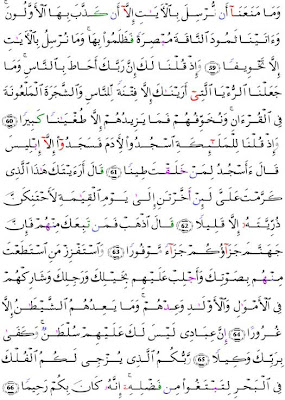 وَمَا مَنَعَنَآ أَن نُّرْسِلَ بِٱلْأَيَٰتِ إِلَّآ أَن كَذَّبَ بِهَا ٱلْأَوَّلُونَ ۚ
وَءَاتَيْنَا ثَمُودَ ٱلنَّاقَةَ مُبْصِرَةً فَظَلَمُوا۟ بِهَا ۚ وَمَا نُرْسِلُ بِٱلْأَيَٰتِ
إِلَّا تَخْوِيفًا ۝٥٩ وَإِذْ قُلْنَا لَكَ إِنَّ رَبَّكَ أَحَاطَ بِٱلنَّاسِ ۚ وَمَا
جَعَلْنَا ٱلرُّءْيَا ٱلَّتِىٓ أَرَيْنَٰكَ إِلَّا فِتْنَةً لِّلنَّاسِ وَٱلشَّجَرَةَ ٱلْمَلْعُونَةَ
فِى ٱلْقُرْءَانِ ۚ وَنُخَوِّفُهُمْ فَمَا يَزِيدُهُمْ إِلَّا طُغْيَٰنًا كَبِيرًا ۝٦٠
وَإِذْ قُلْنَا لِلْمَلَٰٓئِكَةِ ٱسْجُدُوا۟ لِأَدَمَ فَسَجَدُوٓا۟ إِلَّآ إِبْلِيسَ
قَالَ ءَأَسْجُدُ لِمَنْ خَلَقْتَ طِينًا ۝٦١ قَالَ أَرَءَيْتَكَ هَٰذَا ٱلَّذِى
كَرَّمْتَ عَلَىَّ لَئِنْ أَخَّرْتَنِ إِلَىٰ يَوْمِ ٱلْقِيَٰمَةِ لَأَحْتَنِكَنَّ
ذُرِّيَّتَهُۥٓ إِلَّا قَلِيلًا ۝٦٢ قَالَ ٱذْهَبْ فَمَن تَبِعَكَ مِنْهُمْ فَإِنَّ
جَهَنَّمَ جَزَآؤُكُمْ جَزَآءً مَّوْفُورًا ۝٦٣ وَٱسْتَفْزِزْ مَنِ ٱسْتَطَعْتَ
مِنْهُم بِصَوْتِكَ وَأَجْلِبْ عَلَيْهِم بِخَيْلِكَ وَرَجِلِكَ وَشَارِكْهُمْ
فِى ٱلْأَمْوَٰلِ وَٱلْأَوْلَٰدِ وَعِدْهُمْ ۚ وَمَا يَعِدُهُمُ ٱلشَّيْطَٰنُ إِلَّا
غُرُورًا ۝٦٤ إِنَّ عِبَادِى لَيْسَ لَكَ عَلَيْهِمْ سُلْطَٰنٌ ۚ وَكَفَىٰ
بِرَبِّكَ وَكِيلًا ۝٦٥ رَّبُّكُمُ ٱلَّذِى يُزْجِى لَكُمُ ٱلْفُلْكَ
فِى ٱلْبَحْرِ لِتَبْتَغُوا۟ مِن فَضْلِهِۦٓ ۚ إِنَّهُۥ كَانَ بِكُمْ رَحِيمًا ۝٦٦